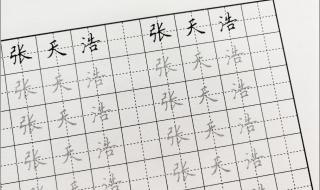 张天浩 张天浩
张天浩 张天浩
张天浩 张天浩
张天浩 张天浩
张天浩 张天浩